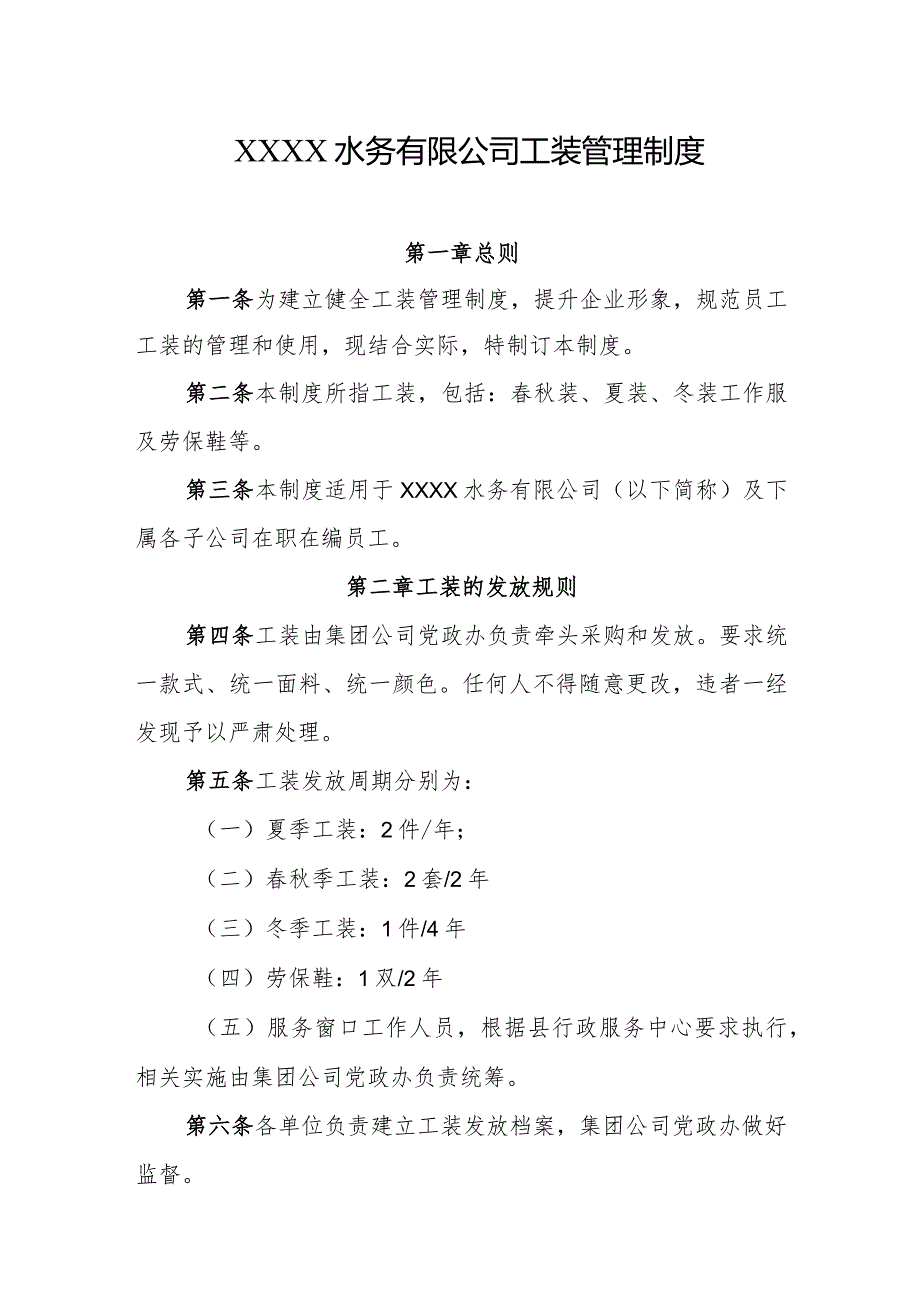 XXXX 水务有限公司工装管理制度
第一章总则
第一条为建立健全工装管理制度，提升企业形象，规范员工
工装的管理和使用，现结合实际，特制订本制度。
第二条本制度所指工装，包括：春秋装、夏装、冬装工作服
及劳保鞋等。
第三条本制度适用于 XXXX 水务有限公司（以下简称）及下
属各子公司在职在编员工。
第二章工装的发放规则
第四条工装由集团公司党政办负责牵头采购和发放。要求统
一款式、统一面料、统一颜色。任何人不得随意更改，违者一经
发现予以严肃处理。
第五条工装发放周期分别为：
（一）夏季工装：2 件/年；
（二）春秋季工装：2 套/2 年
（三）冬季工装：1 件/4 年
（四）劳保鞋：1 双/2 年
（五）服务窗口工作人员，根据县行政服务中心要求执行，
相关实施由集团公司党政办负责统筹。
第六条各单位负责建立工装发放档案，集团公司党政办做好
监督。